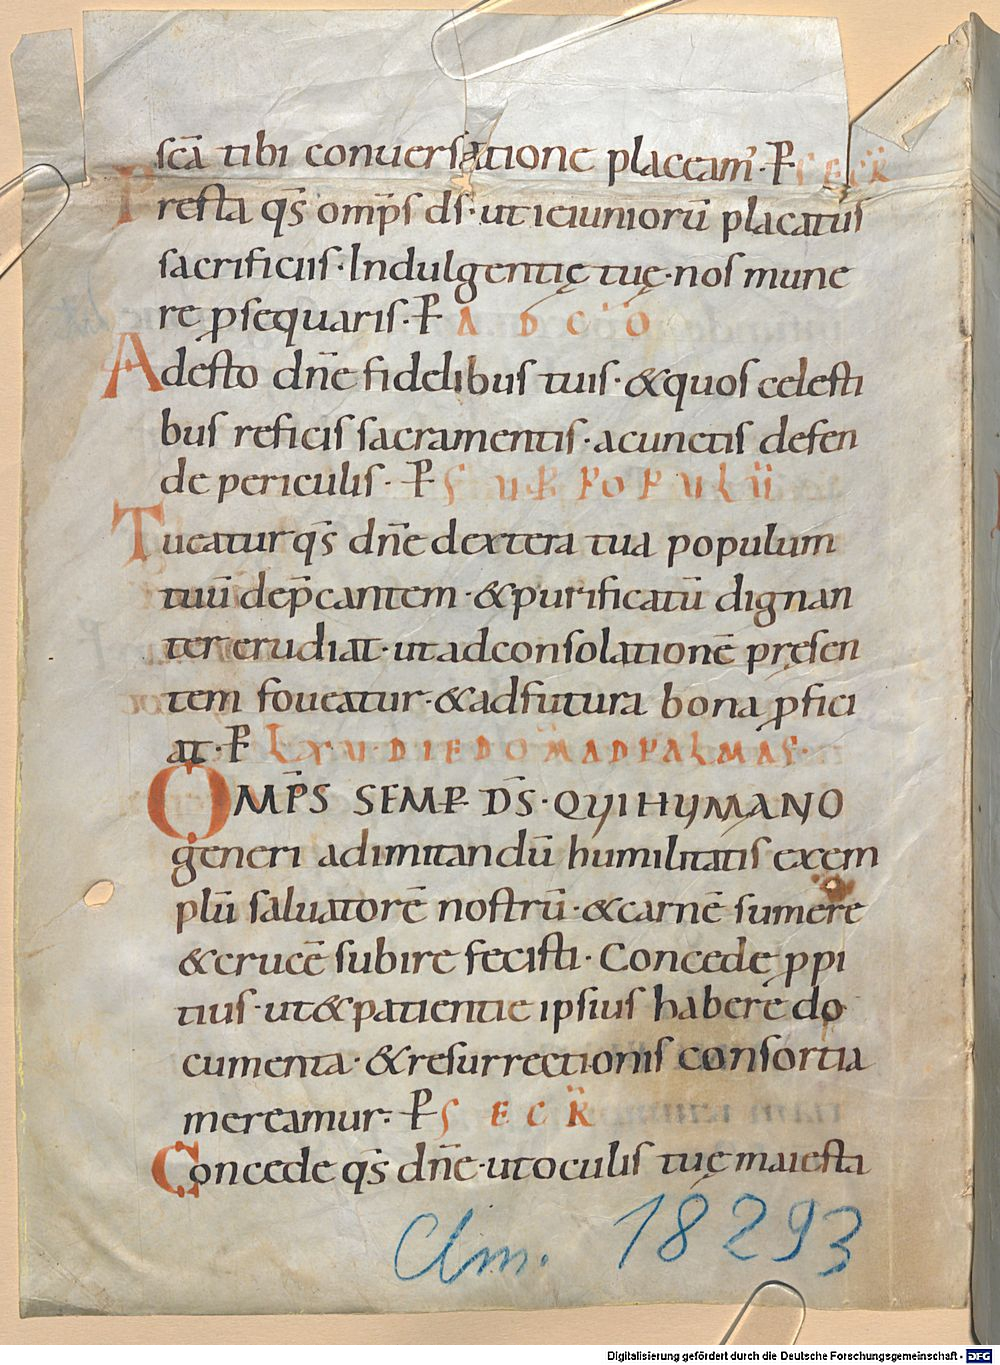 sc̄ā tibi conuersatione placeam̄· P̵ SECR̈
Presta q̄s om̄p̄s d̄s· ut ieiuniorū placatus
sacrificiis· Indulgentię tuę· nos mune
re ꝓsequaris· P̵ AD CÖ
Adesto dn̄e fidelibus tuis· &quos celesti
bus reficis sacramentis· acunctis defen
de periculis· P̵ SUP̵ POPULÜ
Tueatur q̄s dn̄e dextera tua populum
tuū dep̄cantem· &purificatū dignan
ter erudiat· ut adconsolationē pręsen
tem foueatur· &adfutura bona ꝓfici
at· P̵ LXV· DIE DOM̈ AD PALMAS·
OMP̄S SEMP̵ D̄S· QUI HUMANO
generi adimitandū humilitatis exem
plū saluatorē nostrū· &carnē sumere
&crucē subire fecisti· Concede ꝓpi
tius· ut&patientie ipsius habere do
cumenta· &resurrectionis consortia
mereamur· P̵ SECR̈
Concede q̄s dn̄e· ut oculis tuę maiesta
Clm. 18293
Digitalisierung gefördert durch die Deutsche Forschungsgemeinschaft - DFG